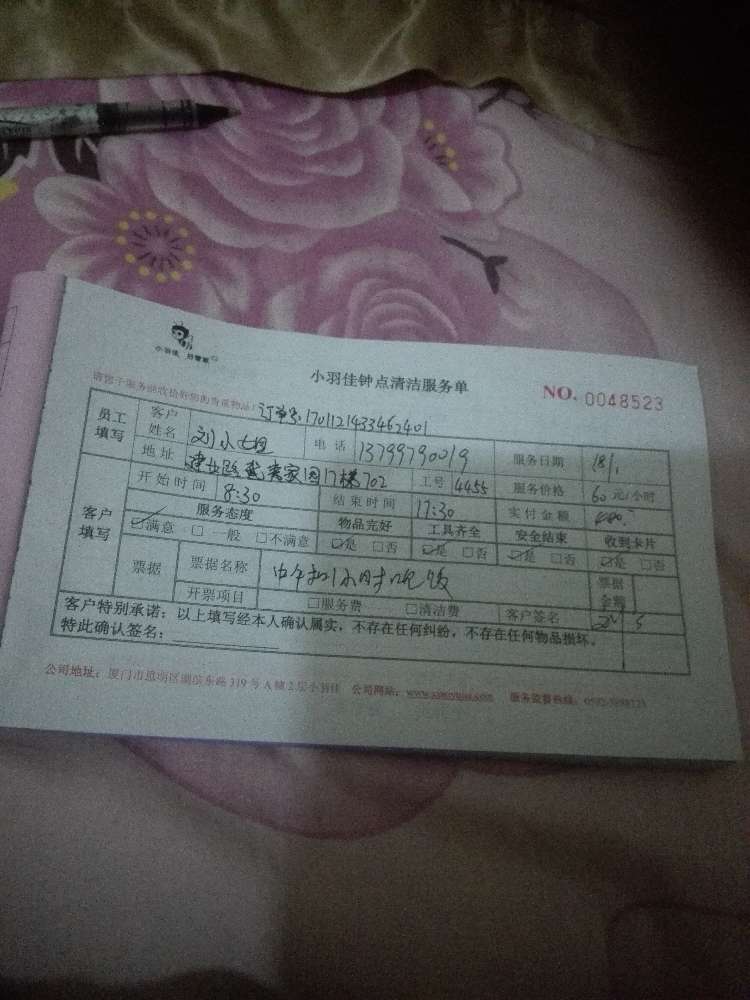 小羽佳 好管家
小羽佳钟点清洁服务单
NO. 0048523
订单号:1701121433462401
员工填写 客户姓名 刘小姐 电话 13799790019 服务日期 18/1
地址 17楼702 工号 4455 服务价格 60元/小时
客户填写 开始时间 8:30 结束时间 17:30 实付金额
服务态度 物品完好 工具齐全 安全结束 收到卡片
☑满意 □一般 □不满意 ☑是 □否 ☑是 □否 ☑是 □否 ☑是 □否
票据 票据名称 中午扣1小时吃饭 票据金额
开票项目 □服务费 □清洁费 客户签名
客户特别承诺：以上填写经本人确认属实，不存在任何纠纷，不存在任何物品损坏。
特此确认签名：
公司地址：厦门市思明区湖滨东路319号A幢2层小羽佳 公司网站： 服务监督热线：